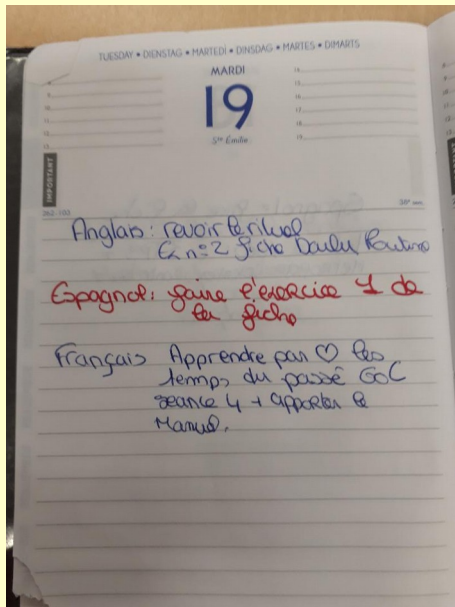 TUESDAY • DIENSTAG • MARTEDÌ • DINSDAG • MARTES • DIMARTS
MARDI
19
Ste Émilie
IMPORTANT
262-103
38e sem.
Anglais : revoir le rituel
Ex n°2 fiche Daily Routine
Espagnol : faire l'exercice 1 de
la fiche
Français Apprendre par ♡ les
temps du passé GoC
séance 4 + apporter le
Manuel.